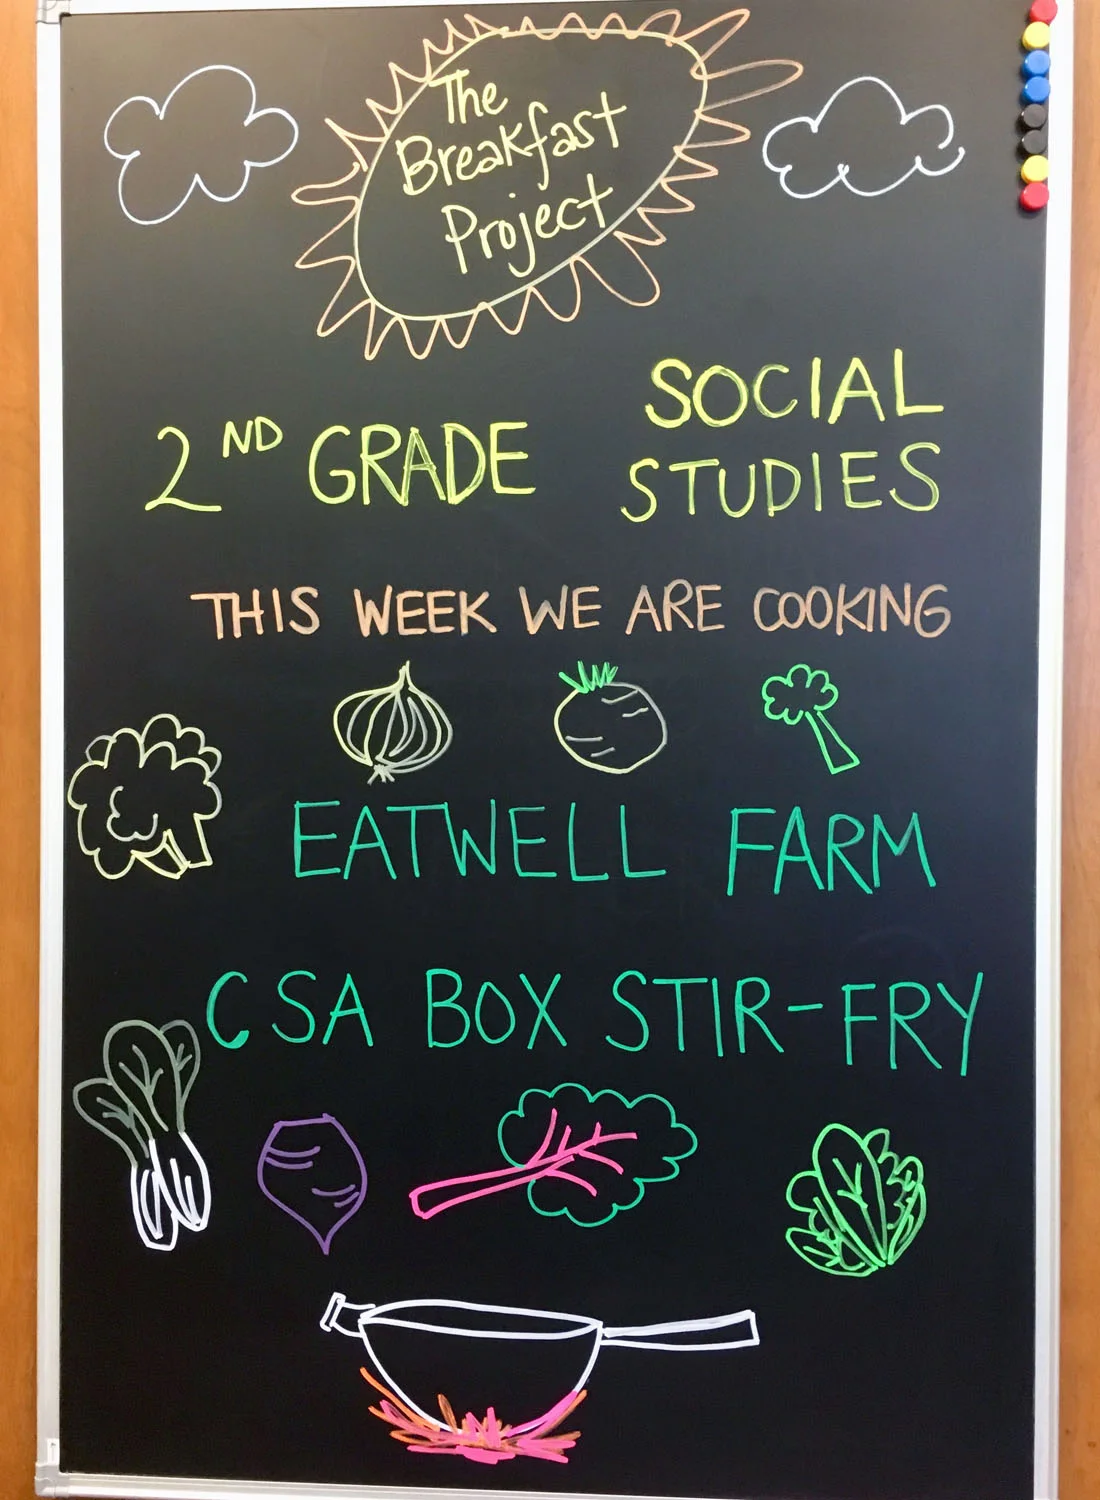 The
Breakfast
Project
2ND GRADE
SOCIAL
STUDIES
THIS WEEK WE ARE COOKING
EATWELL FARM
CSA BOX STIR-FRY